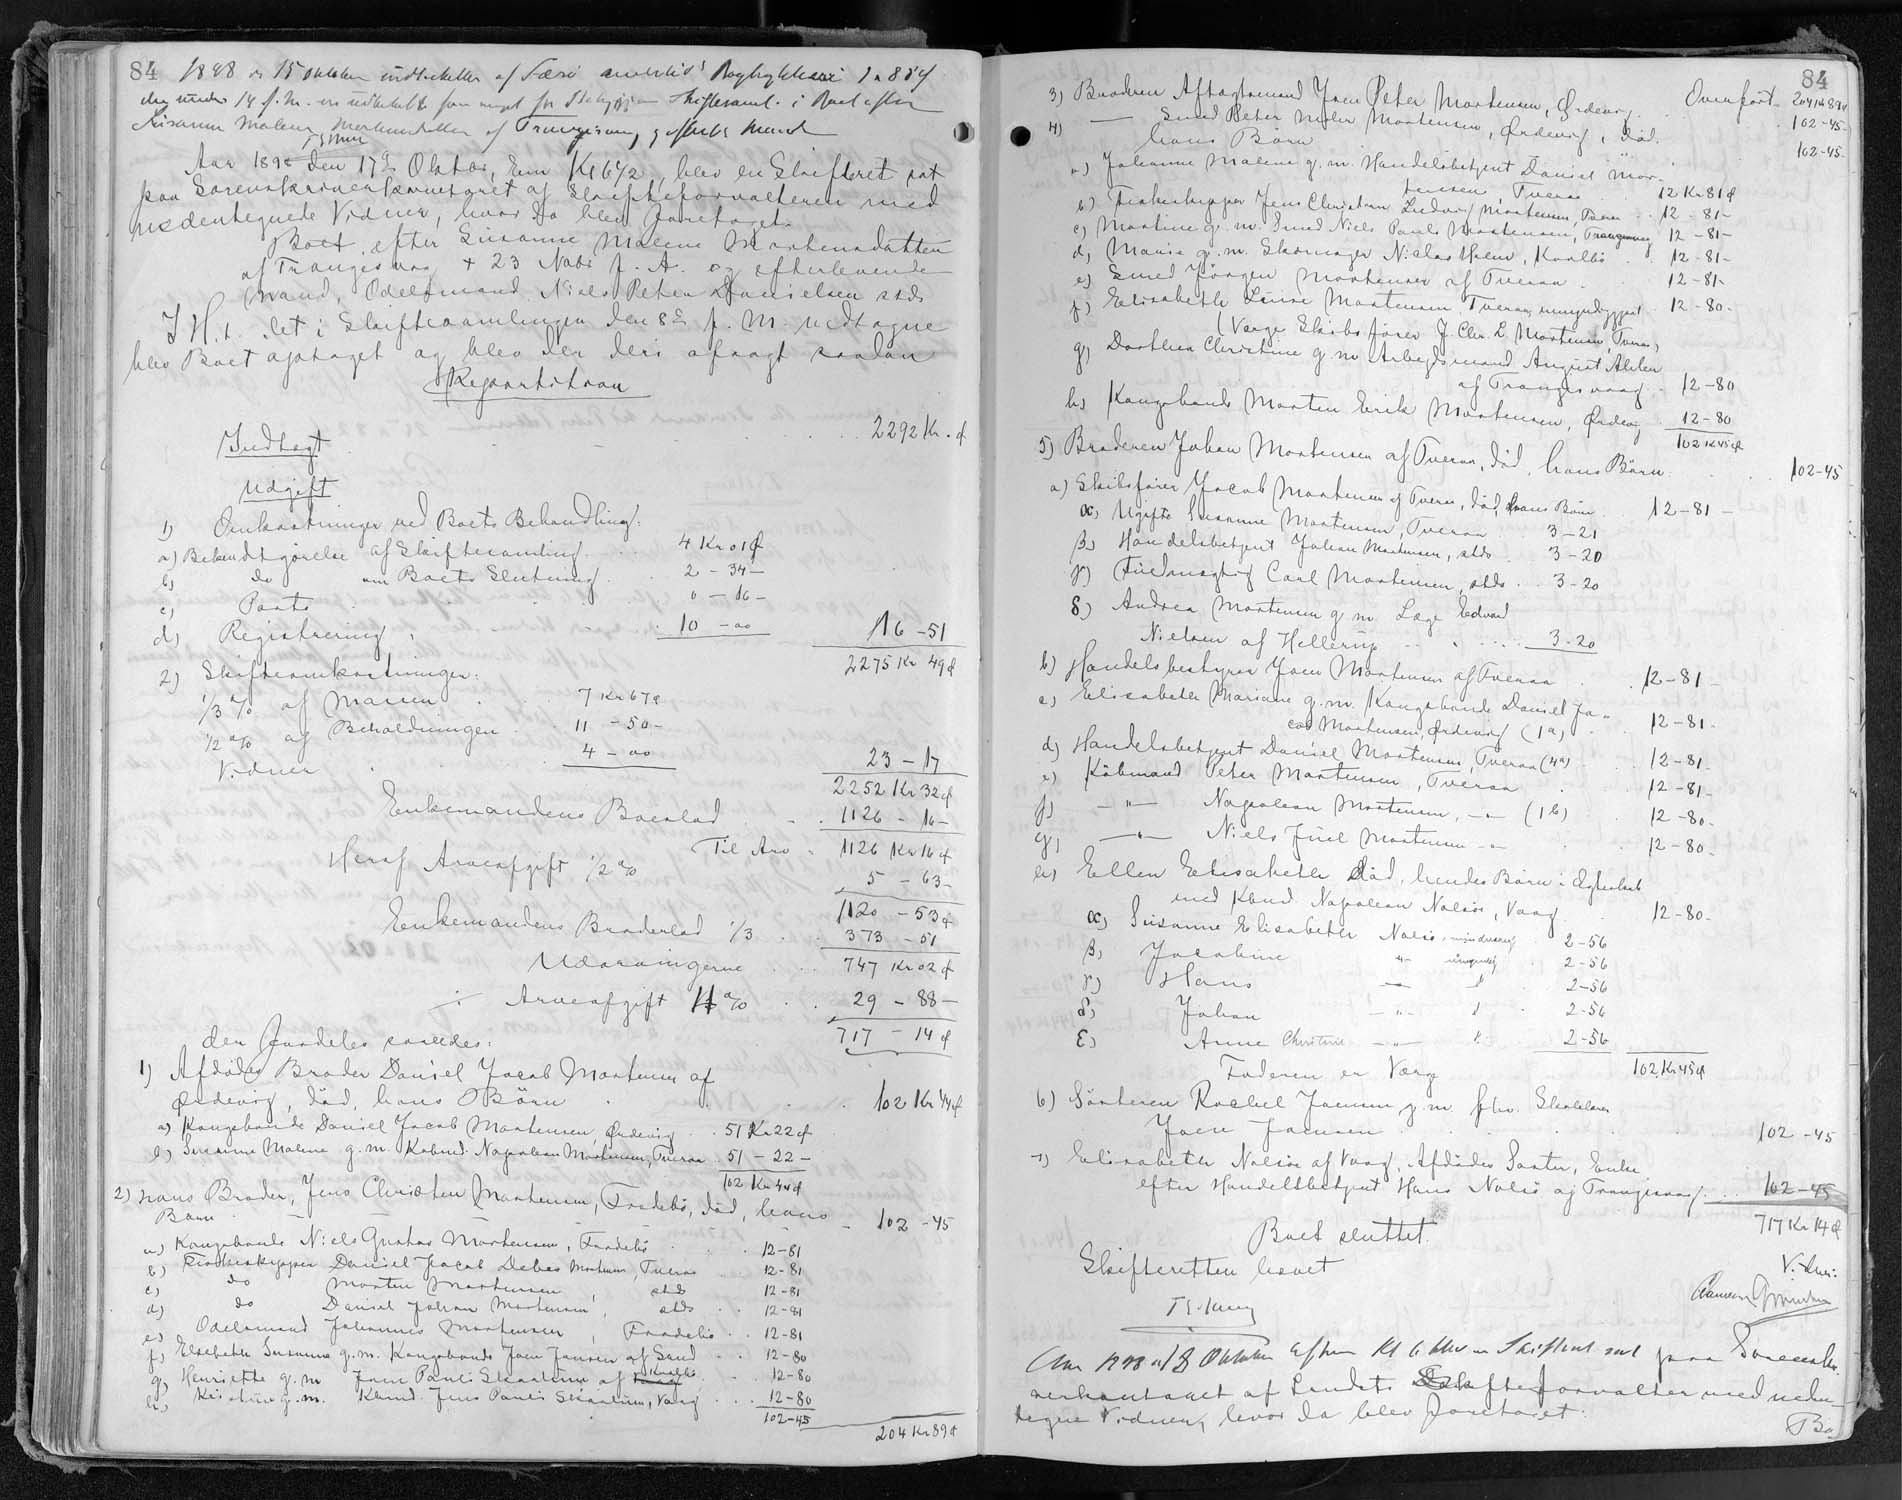 84
1898 15 Oktober af
den 14 f. M. i Boet efter
Malene af Trangisvaag
Aar 1898 den 17de Oktbr, Em Kl 6 1/2, blev en Skifteret sat
paa Sorenskriverkontoret af Skifteforvalteren med
nedentegnede Vidner, hvor da blev foretaget
Boet efter Susanne Malene Mortensdatter
af Trangisvaag + 23 Novbr f. A. og efterlevende
Mand, Odelsmand Niels Peter Danielsen stds
I H. t. det i Skiftesamlingen den 8de f. M. vedtagne
blev Boet optaget og blev der deri afsagt saadan
Repartition
Indtægt . . . 2292 Kr. „ Ø
Udgift
1) Omkostninger ved Boets Behandling:
a) Bekendtgørelse af Skiftesamling . . 4 Kr 01 Ø
b) do om Boets Slutning . . 2 - 34 -
c) Porto . . 0 - 16 -
d) Registrering . . 10 - 00 16 - 51
2275 Kr 49 Ø
2) Skifteomkostninger:
1/3 % af Massen . . 7 Kr 67 Ø
1/2 % af Beholdningen . . 11 - 50 -
Vidner . . 4 - 00 23 - 17
2252 Kr 32 Ø
Enkemandens Boeslod . . 1126 - 16 -
Til Arv . 1126 Kr 16 Ø
Heraf Arveafgift 1/2 % 5 - 63 -
1120 - 53 Ø
Enkemandens Broderlod 1/3 . . 373 - 51
Udarvingerne . . 747 Kr 02 Ø
÷ Arveafgift 4 % . . 29 - 88 -
717 - 14 Ø
der fordeles saaledes:
1) Afdødes Broder Daniel Jacob Mortensen af
Ørdevig, død, hans Børn . . 102 Kr 44 Ø
a) Kongsbonde Daniel Jacob Mortensen, Ørdevig . . 51 Kr 22 Ø
b) Susanne Malene g. m. Købmd. Napoleon Mortensen, Tveraa . . 51 - 22 -
102 Kr 44 Ø
2) hans Broder, Jens Christen Mortensen, Frodebø, død, hans
Børn . . 102 - 45
a) Kongsbonde Niels Gustav Mortensen, Frodebø . . 12-81
b) Fiskeskipper Daniel Jacob Debes Mortensen, Tveraa . . 12-81
c) do Morten Mortensen, stds 12-81
d) do Daniel Johan Mortensen, stds . . 12-81
e) Odelsmand Johannes Mortensen, Frodebø . . 12-81
f) Elsebeth Susanne g. m. Kongsbonde Joen Jansen af Sand . . 12-80
g) Henriette g. m. Joen Pauli Skaalum af Kvalbø . . 12-80
h) Kristine g. m. Kbmd. Jens Pauli Skaalum, Vaag . . . 12-80
102-45
204 Kr 89 Ø
84
Overført 204 Kr 89 Ø
3) Broderen Aftægtsmand Joen Peter Mortensen, Ørdevig . . 102-45-
4) — Smed Peter Mortensen, Ørdevig, død.
hans Børn . . 102-45-
a) Johanne Malene g. m. Handelsbetjent Daniel Mor-
tensen, Tveraa . . 12 Kr 81 Ø
b) Fiskeskipper Jens Christian Ludvig Mortensen, Tveraa . . 12 - 81 -
c) Martine g. m. Smed Niels Pauli Mortensen, Trangisvaag 12 - 81 -
d) Maria g. m. Skomager Niclas Holm, Kvalbø . . 12 - 81 -
e) Smed Jørgen Mortensen af Tveraa . 12 - 81 -
f) Elisabeth Louise Mortensen Tveraa, umyndiggjort . 12 - 80 -
(Værge Skibsfører J. Chr. L. Mortensen, Tveraa)
g) Dorthea Christine g. m. Arbejdsmand August
af Trangisvaag . . 12 - 80
h) Kongsbonde Morten Erik Mortensen, Ørdevig . . 12 - 80
102 Kr 45 Ø
5) Broderen Johan Mortensen af Tveraa, død, hans Børn . . 102-45
a) Skibsfører Jacob Mortensen af Tveraa, død, hans Børn . 12 - 81 -
α) Ugifte Susanne Mortensen, Tveraa . . 3 - 21
β) Handelsbetjent Johan Mortensen, stds . . 3 - 20
γ) Fuldmægtig Carl Mortensen, stds . . 3 - 20
δ) Andrea Mortensen g. m. Læge Edvard
Nielsen af Hellerup . . . 3 - 20
b) Handelsbestyrer Joen Mortensen af Tveraa . . 12 - 81 -
c) Elisabeth Mariane g. m. Kongsbonde Daniel Ja-
cob Mortensen, Ørdevig (1a) . . 12 - 81 -
d) Handelsbetjent Daniel Mortensen, Tveraa (4a) . . 12 - 81 -
e) Købmand Peter Mortensen, Tveraa . 12 - 81 -
f) - „ - Napoleon Mortensen, - „ - (1b) . 12 - 80 -
g) - „ - Niels Juel Mortensen - „ - . 12 - 80 -
h) Ellen Elisabeth død, hendes Børn i Ægteskab
med Kbmd. Napoleon Nolsøe, Vaag . . 12 - 80 -
α) Susanne Elisabeth Nolsøe, mindreaarig 2 - 56
β) Jacobine - „ - umyndig . 2 - 56
γ) Hans - „ - . 2 - 56
δ) Johan - „ - . 2 - 56
ε) Anne Christine - „ - . 2 - 56
Faderen er Værge 102 Kr 45 Ø
6) Søsteren Rachel Joensen g. m. fhv. Skolelærer
Joen Joensen . . . 102 - 45
7) Elisabeth Nolsøe af Vaag, Afdødes Søster, Enke
efter Handelsbetjent Hans Nolsø af Trangisvaag . . 102 - 45
717 Kr 14 Ø
Boet sluttet.
Skifteretten hævet
Vidner:
Aar 1898 d 8 Oktober Efterm Kl 6 blev en Skifteret sat paa Sorenskri-
verkontoret af Landets Skifteforvalter med neden-
tegnede Vidner, hvor da blev foretaget.
Bo